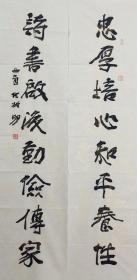 忠厚培心和平養性
詩書啟後勤儉傳家